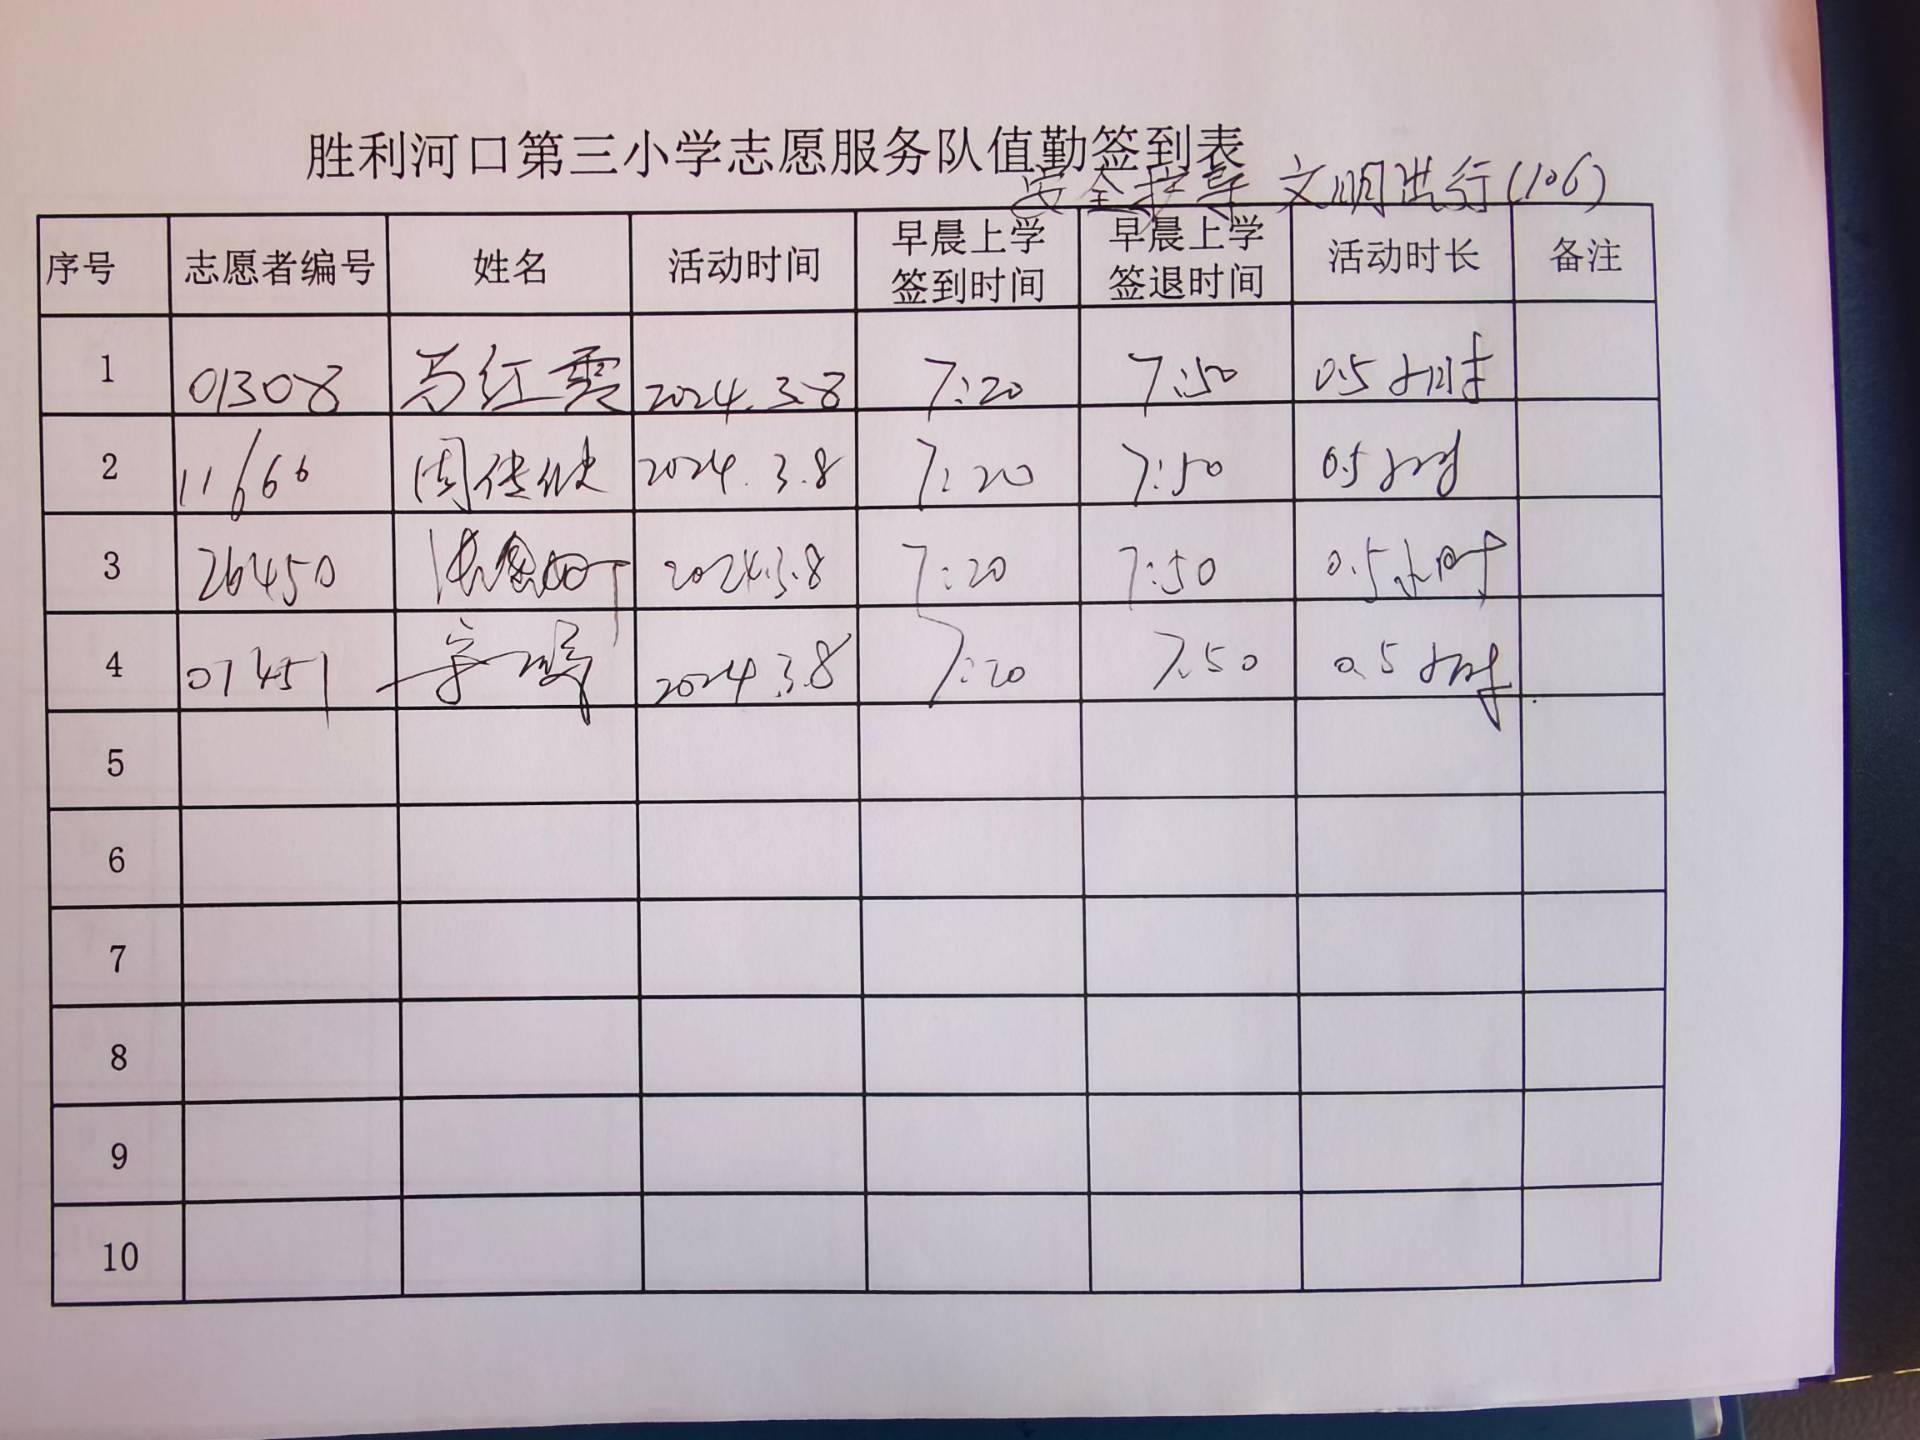 胜利河口第三小学志愿服务队值勤签到表
安全护导 文明出行(106)
序号 志愿者编号 姓名 活动时间 早晨上学签到时间 早晨上学签退时间 活动时长 备注
1 01308 马红霞 2024.3.8 7:20 7:50 0.5小时
2 11660 周传 2024.3.8 7:20 7:50 0.5小时
3 26450 2024.3.8 7:20 7:50 0.5小时
4 07451 2024.3.8 7:20 7:50 0.5小时
5
6
7
8
9
10